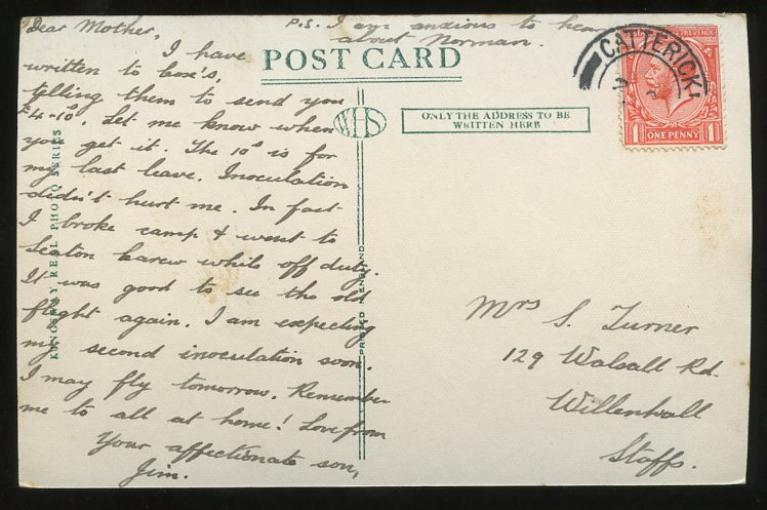 Dear Mother,
P.S. I am anxious to hear
about Norman.
I have
written to box's,
telling them to send you
£4-10s. Let me know when
you get it. The 10s is for
my last leave. Inoculation
didn't hurt me. In fact
I broke camp & went to
Seaton Carew while off duty.
It was good to see the old
flight again. I am expecting
my second inoculation soon.
I may fly tomorrow. Remember
me to all at home! Love from
Your affectionate son,
Jim.
POST CARD
WHS
ONLY THE ADDRESS TO BE
WRITTEN HERE
PRINTED IN ENGLAND
REAL PHOTO SERIES
CATTERICK
REVENUE
1 ONE PENNY 1
Mrs S. Turner
129 Walsall Rd.
Willenhall
Staffs.